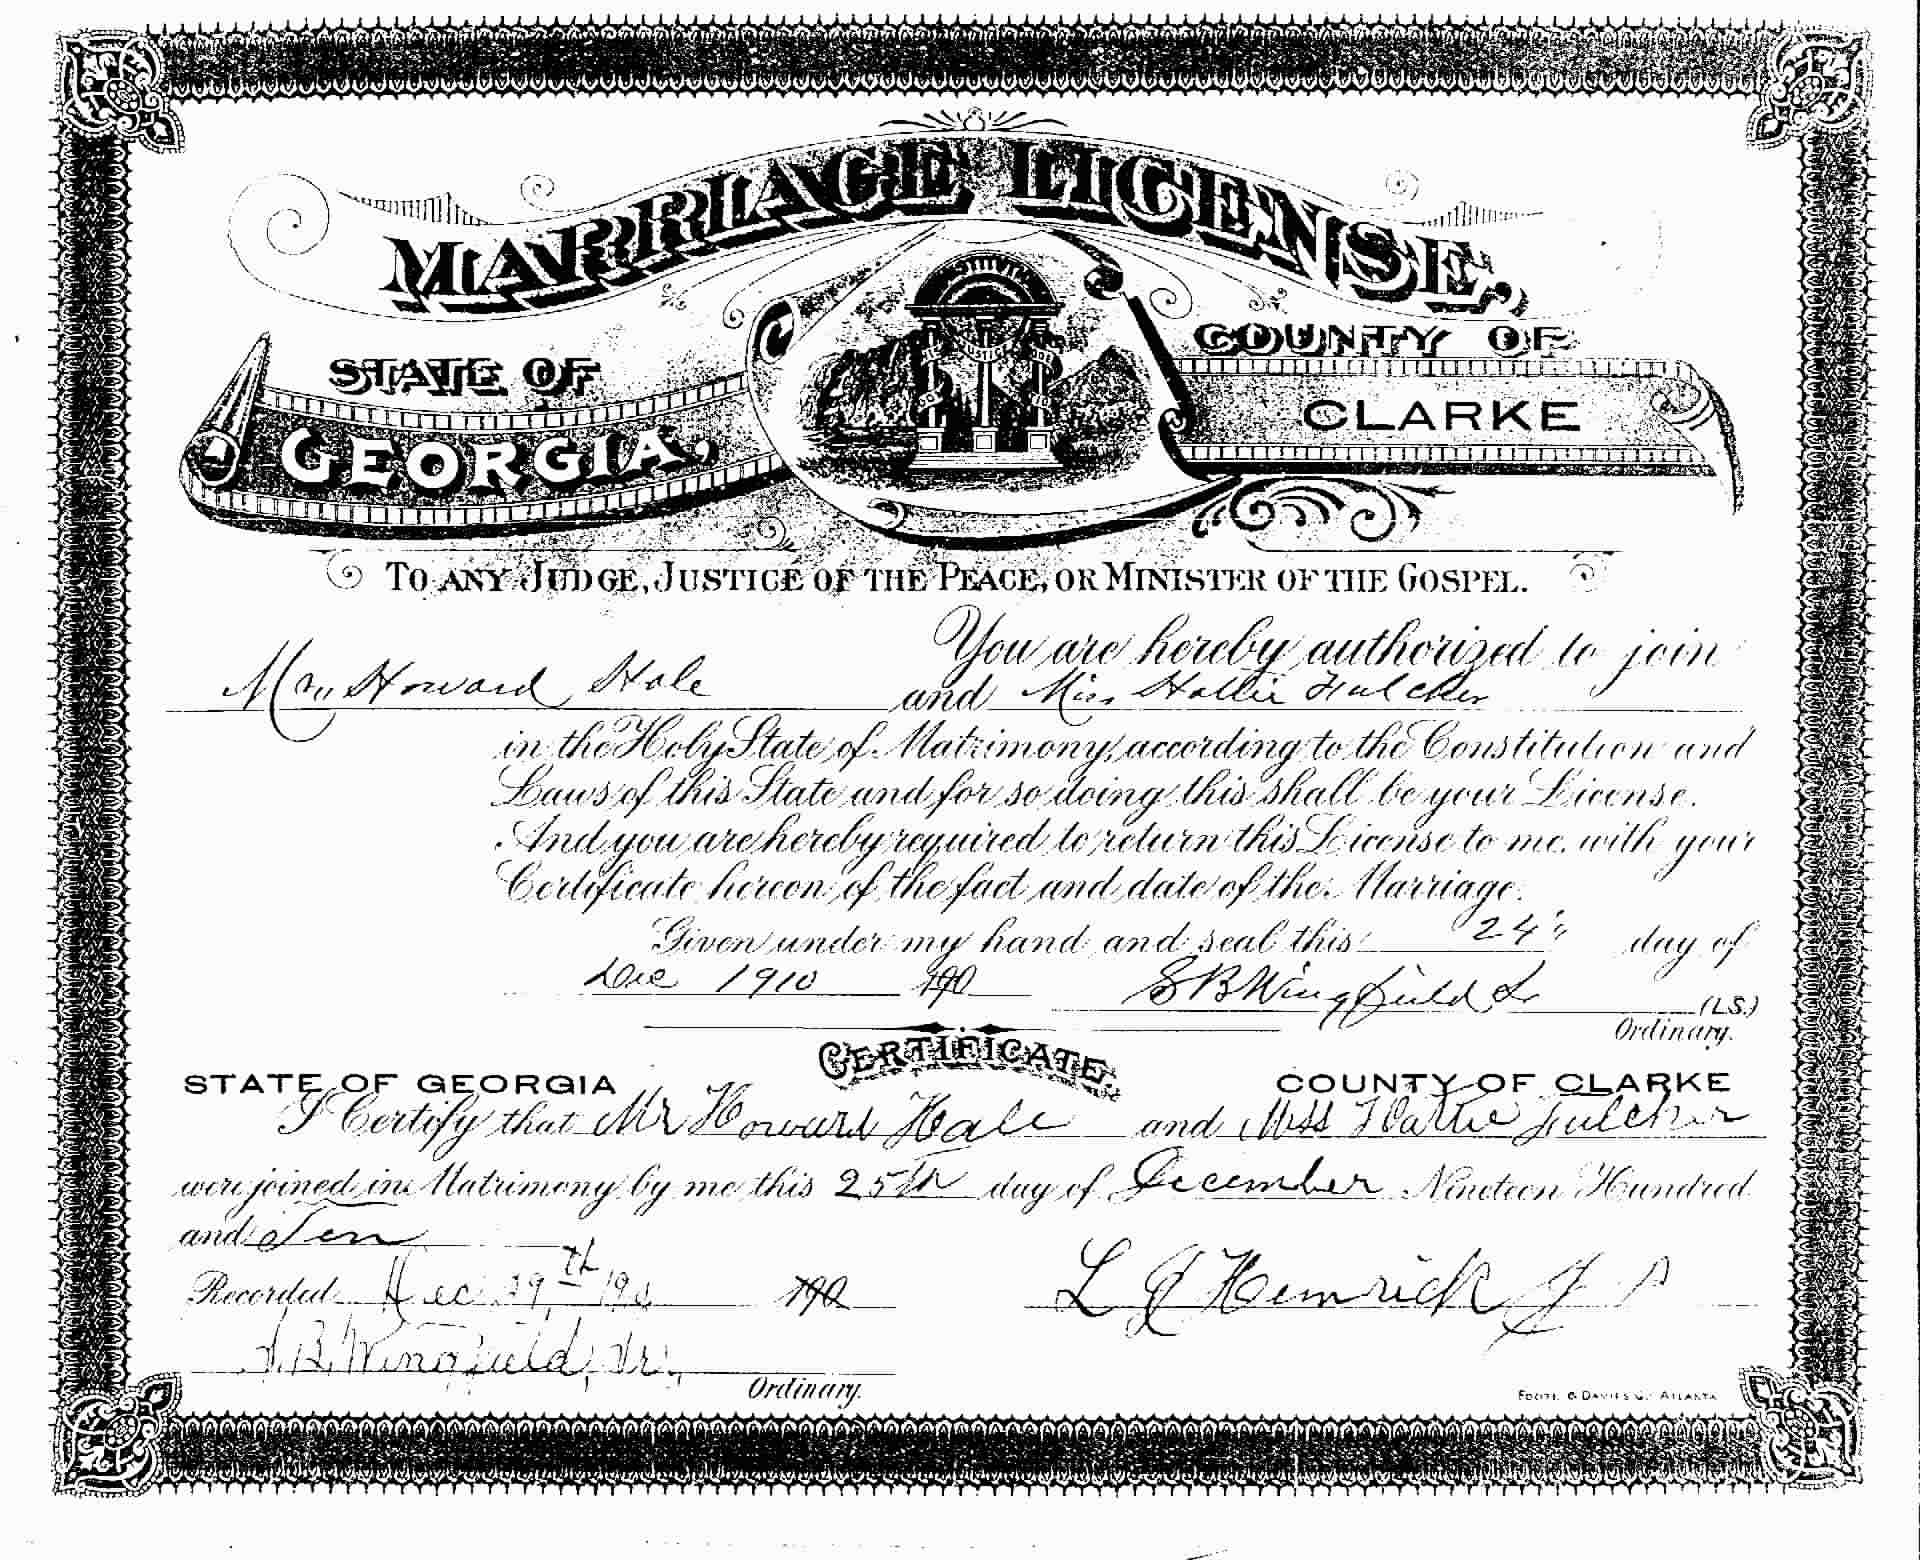 MARRIAGE LICENSE,
STATE OF
GEORGIA,
JUSTICE
COUNTY OF
CLARKE
TO ANY JUDGE, JUSTICE OF THE PEACE, OR MINISTER OF THE GOSPEL.
You are hereby authorized to join
Mr. Howard Hale and Miss Hattie Fulcher
in the Holy State of Matrimony, according to the Constitution and
Laws of this State and for so doing this shall be your License.
And you are hereby required to return this License to me, with your
Certificate hereon of the fact and date of the Marriage.
Given under my hand and seal this 24" day of
Dec 1910 190 S B Wingfield Jr (L.S.)
Ordinary.
CERTIFICATE.
STATE OF GEORGIA COUNTY OF CLARKE
I Certify that Mr Howard Hale and Miss Hattie Fulcher
were joined in Matrimony by me this 25th day of December Nineteen Hundred
and Ten
Recorded Dec 29th 190 L J P
Wingfield, Jr.,
Ordinary.
FOOTE & DAVIES CO. ATLANTA